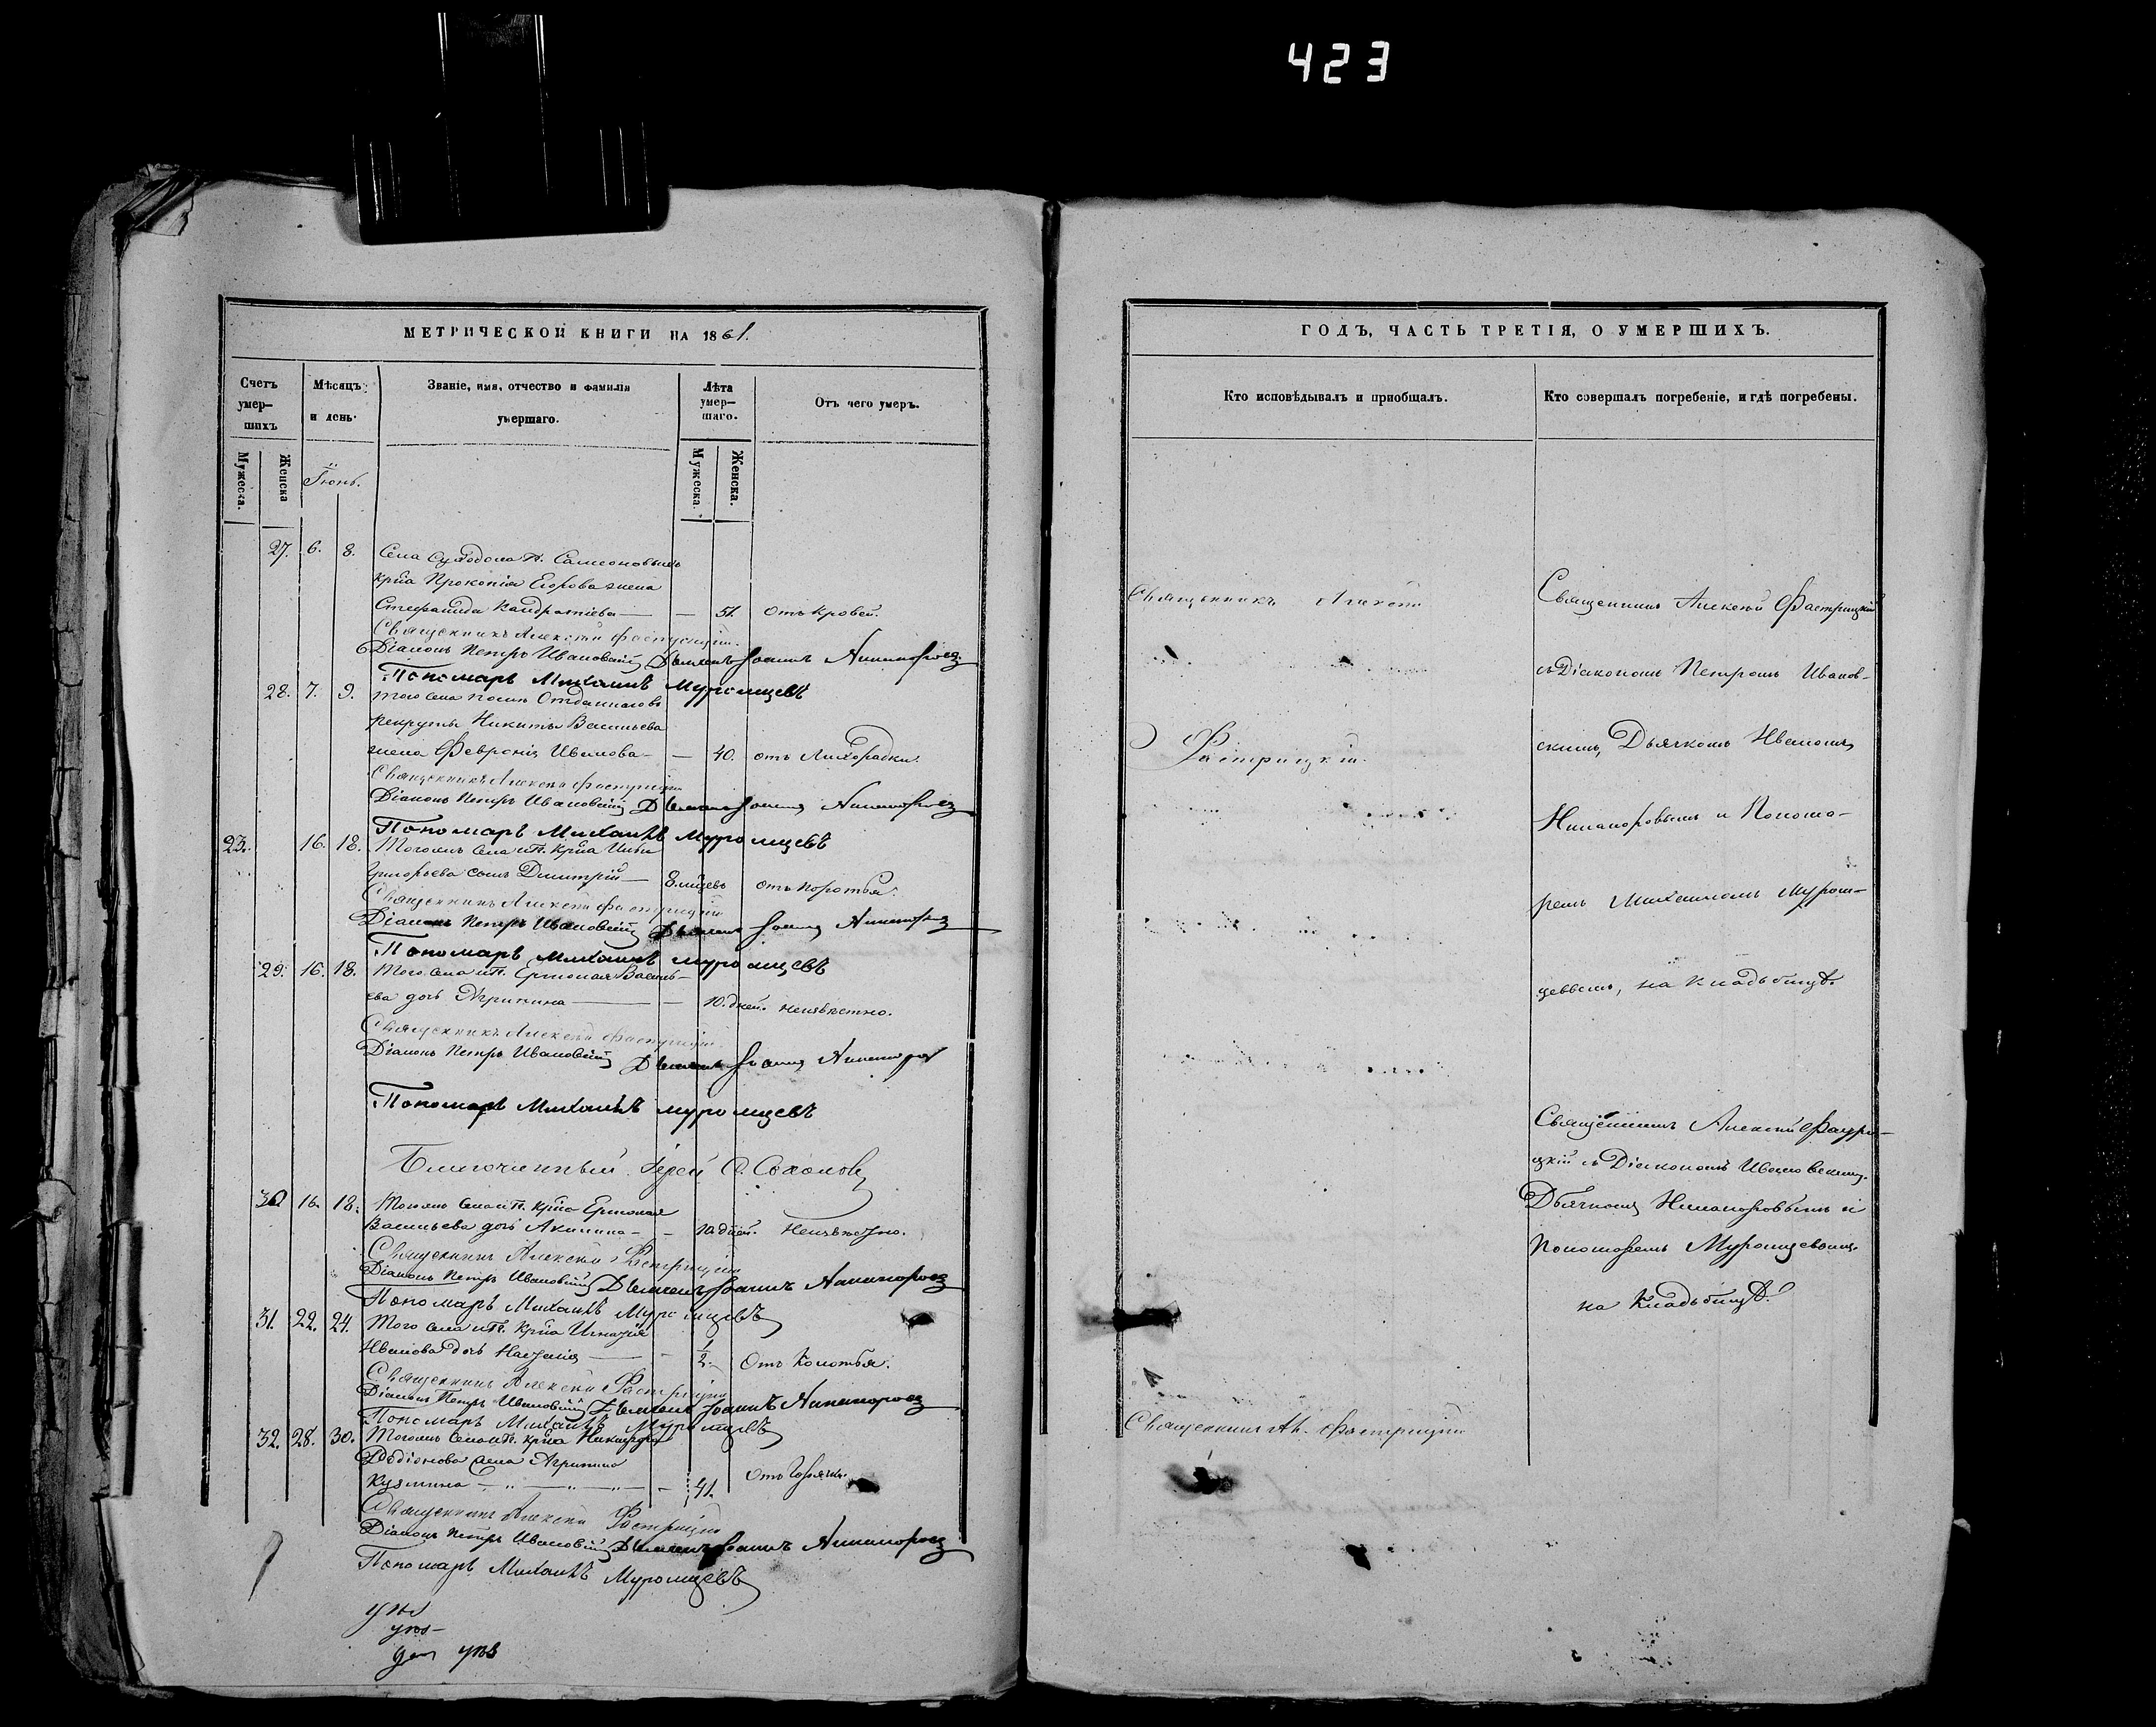 423
МЕТРИЧЕСКОЙ КНИГИ НА 1861.
Счетъ умер—шихъ
Мѣсяцъ и день.
Званіе, имя, отчество и фамилія умершаго.
Лѣта умер—шаго.
Отъ чего умеръ.
Мужеска.
Женска
Іюнь.
Мужеска.
Женска.
27. 6. 8. Села Суходола
крͥна Прокопія Егорова жена
Стефанида Кандратіева — — 51. Отъ кровей.
Священникъ Алексѣй Фастрицкій.
Діаконъ Петръ Ивановскій Дьячекъ Іоаннъ Никаноровъ
Пономарь Михаилъ Муромцевъ
28. 7. 9. Того села
рекруты Никиты Васильева
жена Февронія Иванова — — 40. отъ Лихорадки.
Священникъ Алексѣй Фастрицкій
Діаконъ Петръ Ивановскій Дьячекъ Іоаннъ Никаноровъ
Пономарь Михаилъ Муромцевъ
23. 16. 18. Тогожъ села
Григорьева сынъ Дмитрій — 8. мцевъ отъ поротья.
Священникъ Алексѣй Фастрицкій
Діаконъ Петръ Ивановскій Дьячекъ Іоаннъ Никаноровъ
Пономарь Михаилъ Муромцевъ
29. 16. 18. Того села Ермолая Василь—
ева дочь Агрипина — — 10. дней. неизвѣстно.
Священникъ Алексѣй Фастрицкій.
Діаконъ Петръ Ивановскій Дьячекъ Іоаннъ Никаноров
Пономарь Михаилъ Муромцевъ
Благочинный Іерей Соколовъ
30 16. 18. Тогожъ села Ермолая
Васильева дочь Акилина — — 10 дней. Неизвѣстно.
Священникъ Алексѣй Фастрицкій
Діаконъ Петръ Ивановскій Дьячекъ Іоаннъ Никаноровъ
Пономарь Михаилъ Муромцевъ
31. 22. 24. Того села Игнатія
Иванова дочь Наталія — — 1/2. Отъ Колотья.
Священникъ Алексѣй Фастрицкій
Діаконъ Петръ Ивановскій Дьячекъ Іоаннъ Никаноровъ
Пономарь Михаилъ Муромцевъ
32. 28. 30. Тогожъ села
Родіонова жена Агрипина
Кузмина — 41. Отъ Горячки.
Священникъ Алексѣй Фастрицкій
Діаконъ Петръ Ивановскій Дьячекъ Іоаннъ Никаноровъ
Пономарь Михаилъ Муромцевъ
ГОДЪ, ЧАСТЬ ТРЕТІЯ, О УМЕРШИХЪ.
Кто исповѣдывалъ и пріобщалъ.
Кто совершалъ погребеніе, и гдѣ погребены.
Священникъ Алексѣй
Фастрицкій.
Священникъ Ал. Фастрицкій
Священникъ Алексѣй Фастрицкій
съ Діакономъ Петромъ Иванов—
скимъ, Дьячкомъ Иваномъ
Никаноровымъ и Понома—
ремъ Михаиломъ Муром—
цевымъ, на Кладьбищѣ.
Священникъ Алексѣй Фастри—
цкій съ Діакономъ Ивановскимъ
Дьячкомъ Никаноровымъ и
Пономаремъ Муромцевымъ
на Кладьбищѣ.